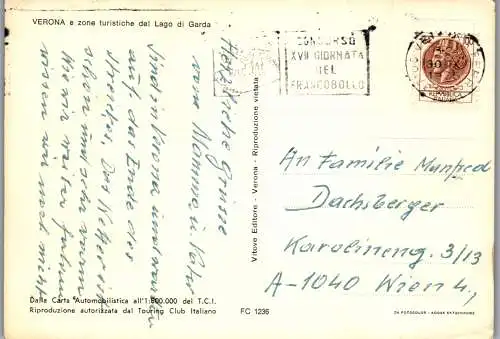 VERONA e zone turistiche dal Lago di Garda
CONCORSO
XVII GIORNATA
DEL
FRANCOBOLLO
Herzliche Grüsse
von Mamma u. Vater
Sind in Verona und
auf das Ende des
Streikes. Das Wetter ist
schön und sehr warm
Wie wir weiter fahren
wissen wir noch nicht
An Familie Manfred
Dachsberger
Karolineng. 3/13
A-1040 Wien 4,
Vitove Editore - Verona - Riproduzione vietata
Dalla Carta Automobilistica all'1:800.000 del T.C.I.
Riproduzione autorizzata dal Touring Club Italiano
FC 1236